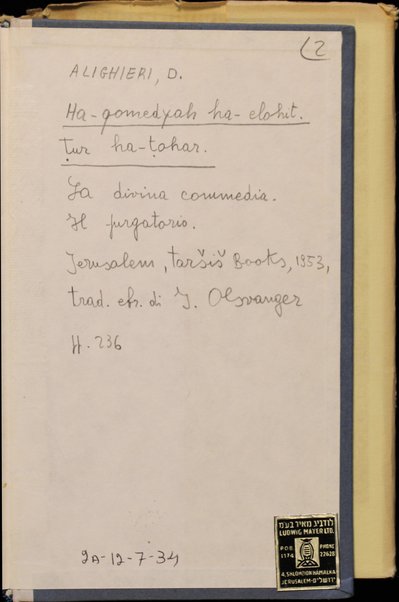 (2
ALIGHIERI, D.
Ha-qomedyah ha-elohit.
Ṭur ha-ṭohar.
La divina commedia.
Il purgatorio.
Jerusalem, Taršiš Books, 1953,
trad. ebr. di I. Olsvanger
H. 236
2A-12-7-34
לודביג מאיר בע"מ
LUDWIG MAYER LTD.
POB 1174
PHONE 22628
4, SHLOMZION HAMALKA
JERUSALEM-ירושלים